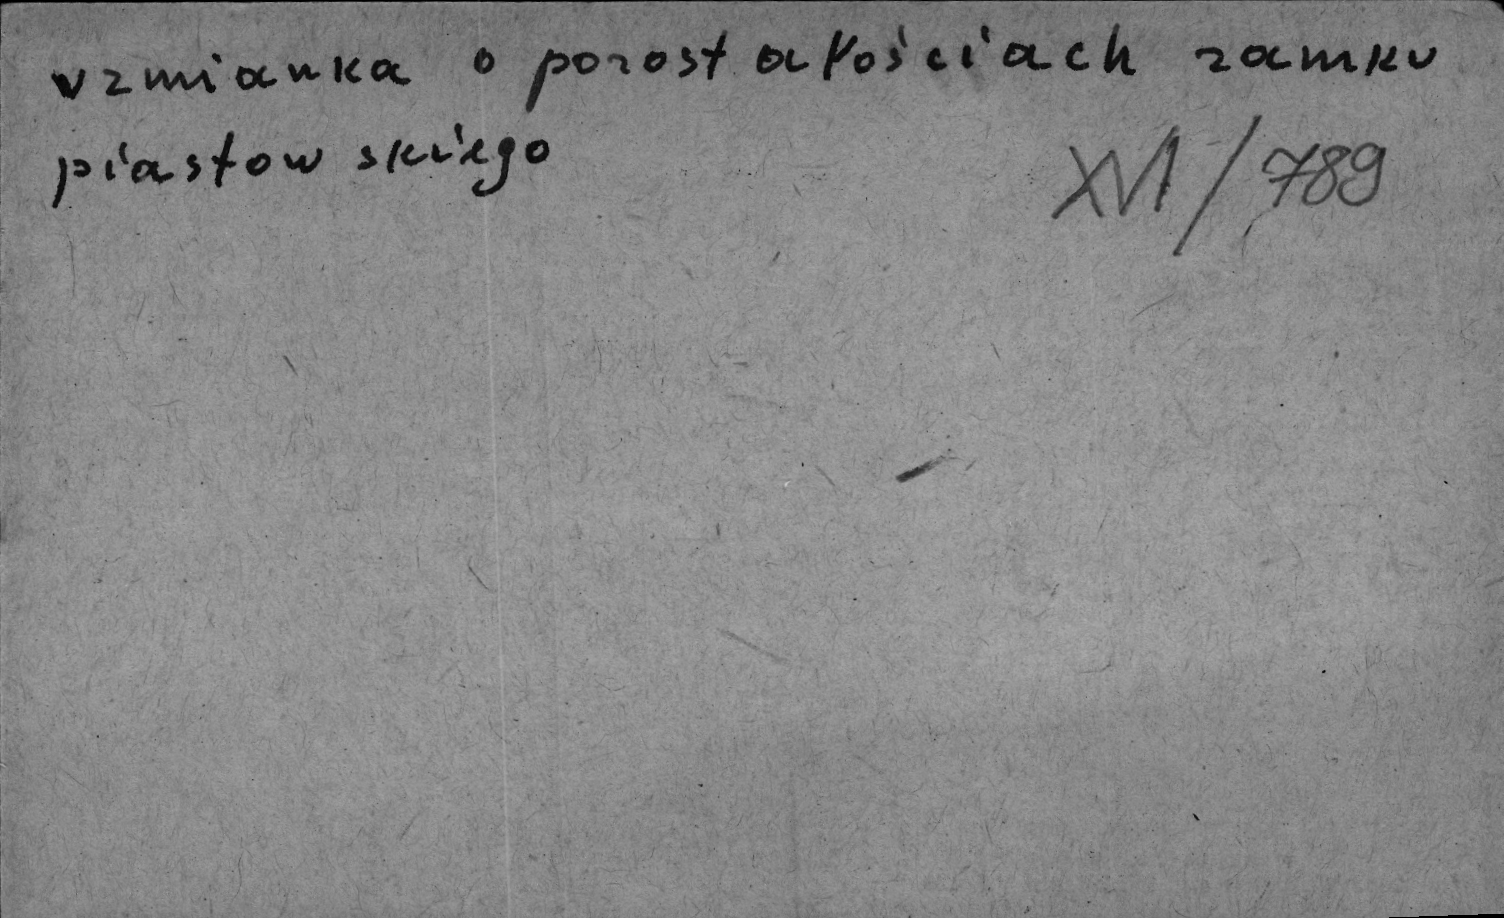 wzmianka o pozostałościach zamku
piastowskiego
XVI/789